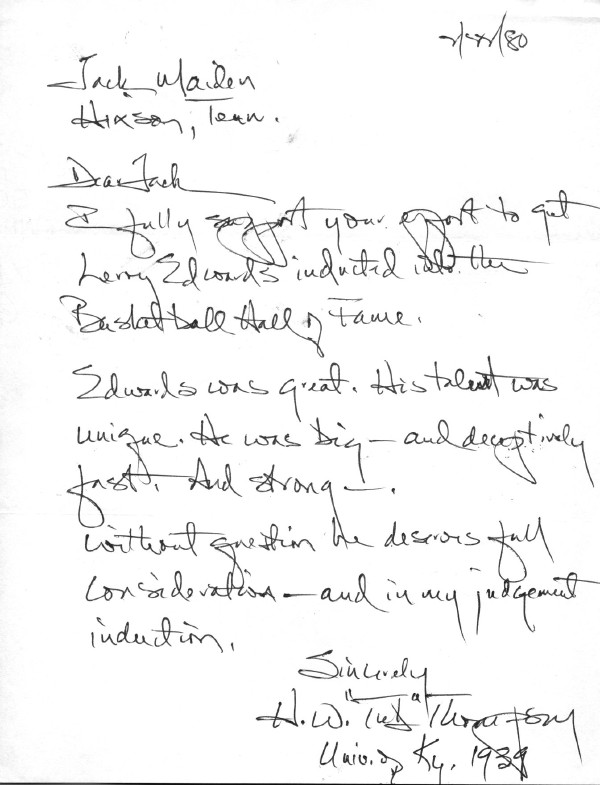 Jack Maiden
Hixson, Tenn.
Dear Jack
I fully support your effort to get
Leroy Edwards inducted into the
Basketball Hall of Fame.
Edwards was great. His talent was
unique. He was big — and deceptively
fast. And strong —.
Without question he deserves full
consideration — and in my judgement
induction.
Sincerely
H.W. Thompson
Univ. of Ky. 1939